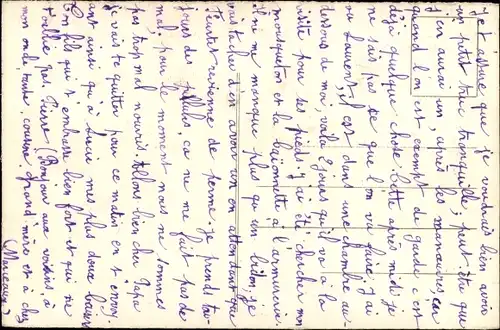 Je t'assure que je voudrais bien avoir
un petit truc tranquille; peut-être que
j'en aurai un, après les manœuvres, car
quand l'on est exempt de garde c'est
déjà quelque chose. Cette après-midi je
ne sais pas ce que l'on va faire. J'ai
vu Laurent, il est dans une chambre au
dessous de moi, voilà 2 jours qu'il va à la
visite pour ses pieds. J'ai été chercher mon
mousqueton et la baïonnette à l'armurerie.
il ne me manque plus qu'un bidon, je
vais tâcher d'en avoir un en attendant que
l'autre revienne de perme. Je prends tou-
jours des pillules, ça ne me fait pas de
mal. pour le moment nous ne sommes
pas trop mal nourris. Allons bien cher Papa
je vais te quitter pour ce matin en t'envoy-
ant ainsi qu'à Lucie mes plus doux baisers
Ton fils qui t'embrasse bien fort et qui ne
t'oublie pas. Pierre (Bonjour aux voisins, à
mon oncle tante, cousine grand'mère et à chez